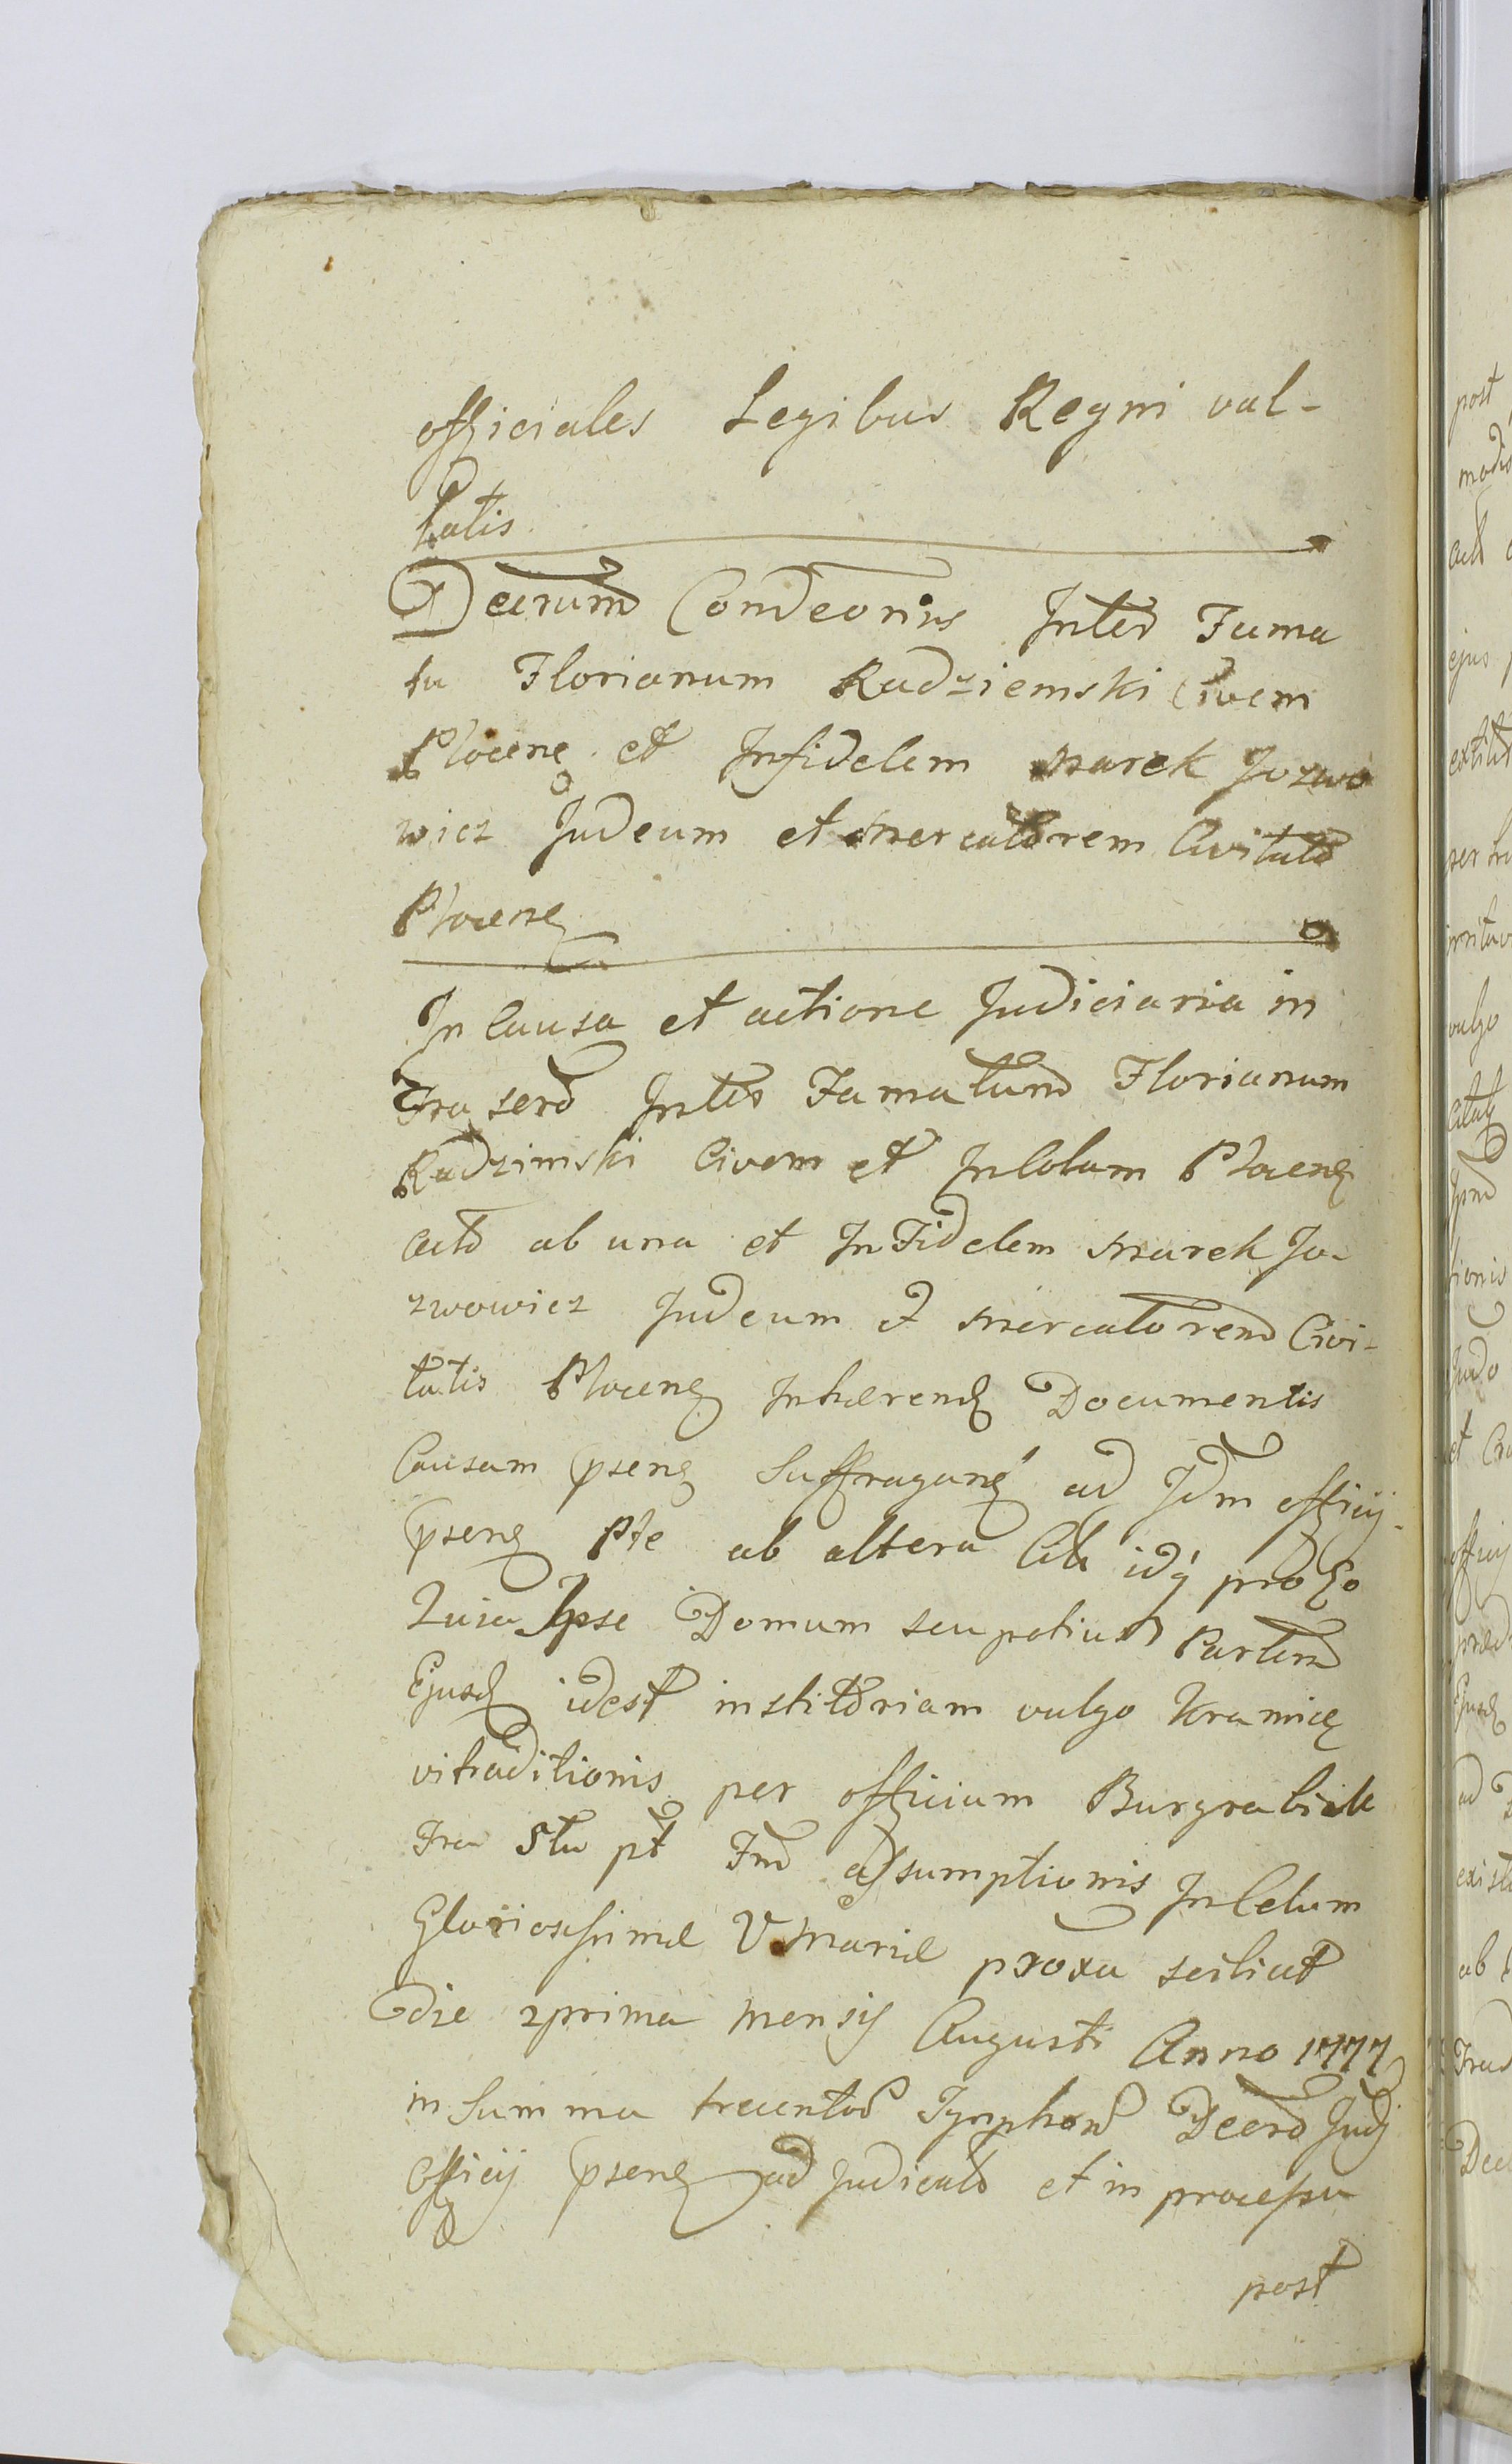 officiales Legibus Regni val-
latis
Decrum Condeonis Inter Fama
tu Florianum Radziemski Civem
Plocens et Infidelem Marek Jozwo
wicz Judeum et Mercatorem Civitats
Plocens
In Causa et actione Judiciaria in
Fra sers Inter Famatum Florianum
Radzimski Civem et Incolam Plocens
Acto ab una et InFidelem Marek Jo-
zwowicz Judeum et Mercatorem Civi-
tatis Plocens Inhærend Documentis
Causam pseng Suffragang ad Jdm officij
pseng Pte ab altera Citt idq pro Eo
Quia Ipse Domum seu potius Partem
Ejusd idest institoriam vulgo Kramice
vi traditionis per officium Burgrabile
Fra Stu pt Fm assumptionis In Celum
Gloriosissimæ V Mariæ proxa scilicet
die 21prima Mensis Augusti Anno 1777
in Summa trecentos Tynphon Decro Judj
Officij pseng adjudicats et in processu
post